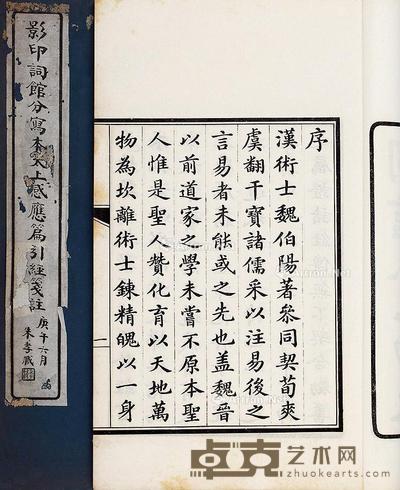 序
漢術士魏伯陽著參同契荀爽
虞翻干寶諸儒采以注易後之
言易者未能或之先也蓋魏晉
以前道家之學未嘗不原本聖
人惟是聖人贊化育以天地萬
物為坎離術士鍊精魄以一身
一
影印詞館分寫本太上感應篇引經箋註
庚午六月
朱孝臧
卓克艺术网
zhuokearts.com